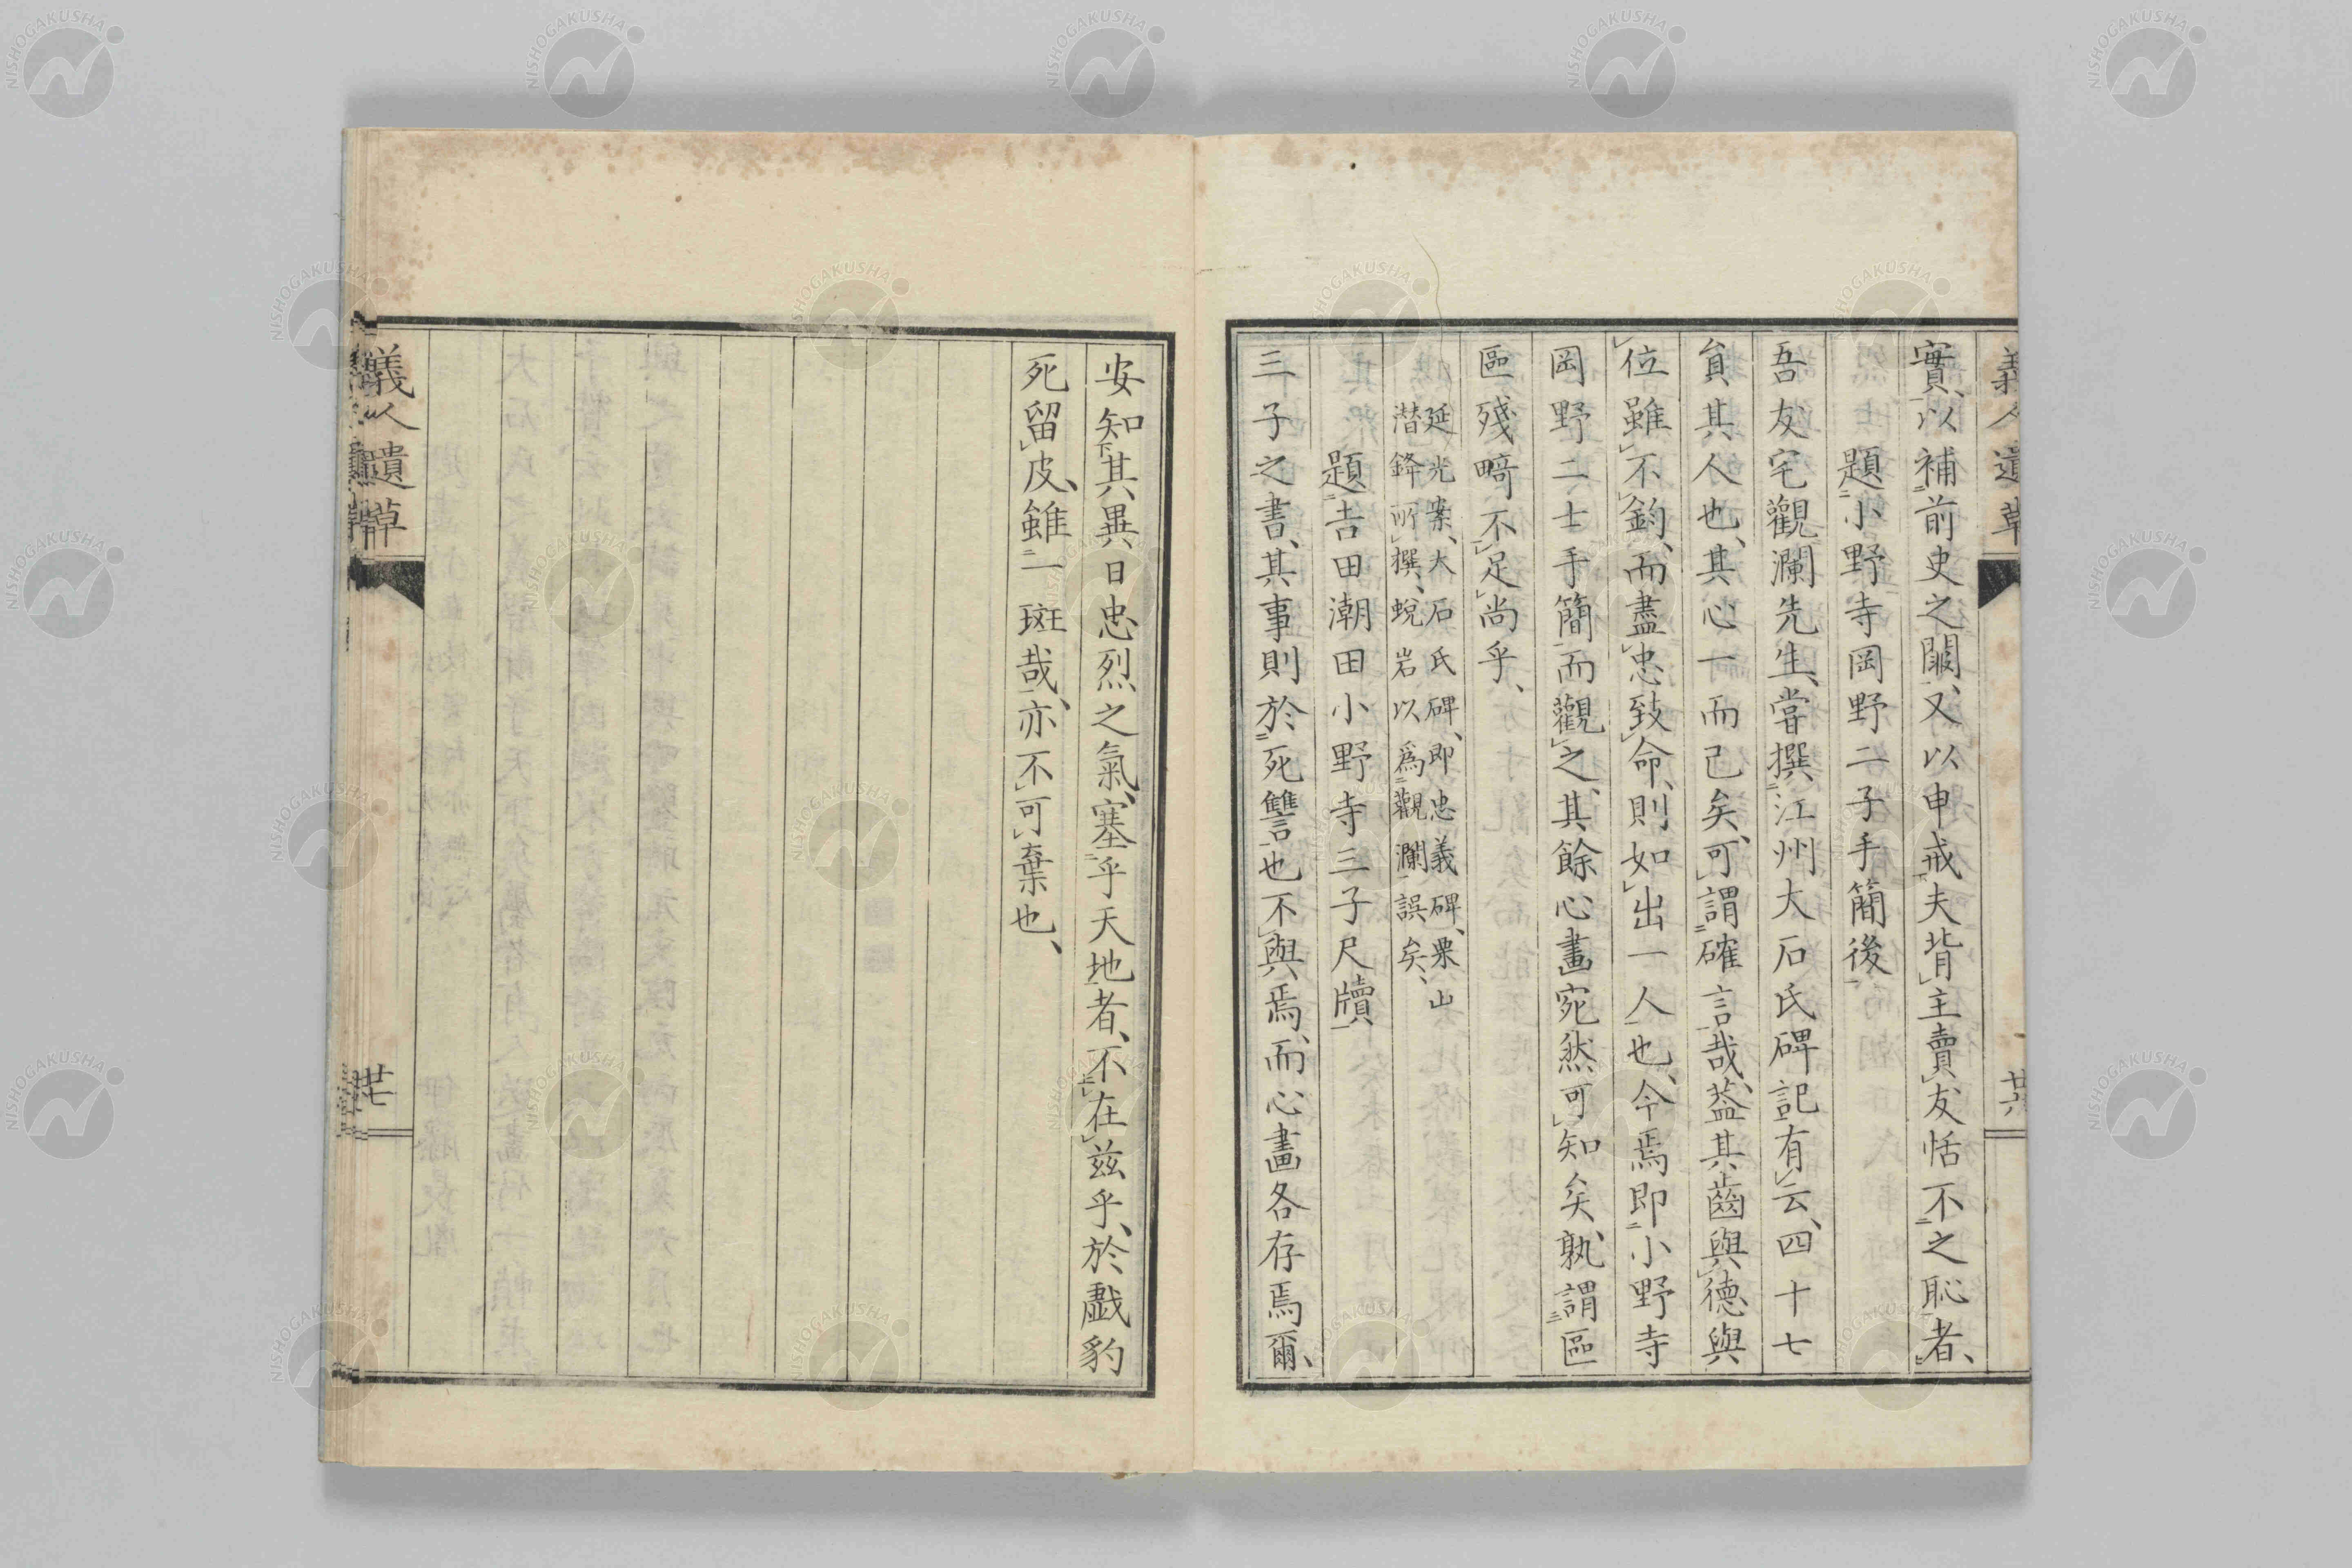 義人遺草
廿六
實、以補前史之闕、又以申戒夫背主賣友恬不之恥者、
題小野寺岡野二子手簡後
吾友宅觀瀾先生、嘗撰江州大石氏碑記有云、四十七
貟其人也、其心一而已矣、可謂確言哉、葢其齒與德與
位雖不鈞、而盡忠致命、則如出一人也、今焉即小野寺
岡野二士手簡而觀之、其餘心畫宛然可知矣、孰謂區
區殘畸不足尚乎、
延光案、大石氏碑、即忠義碑、栗山
潜鋒所撰、蛻岩以爲觀瀾誤矣、
題吉田潮田小野寺三子尺牘
三子之書、其事則於死讐也不與焉、而心畫各存焉爾、
安知其異日忠烈之氣、塞乎天地者、不在兹乎、於戲豹
死留皮、雖一斑哉、亦不可棄也、
義人遺草
廿七
NISHOGAKUSHA